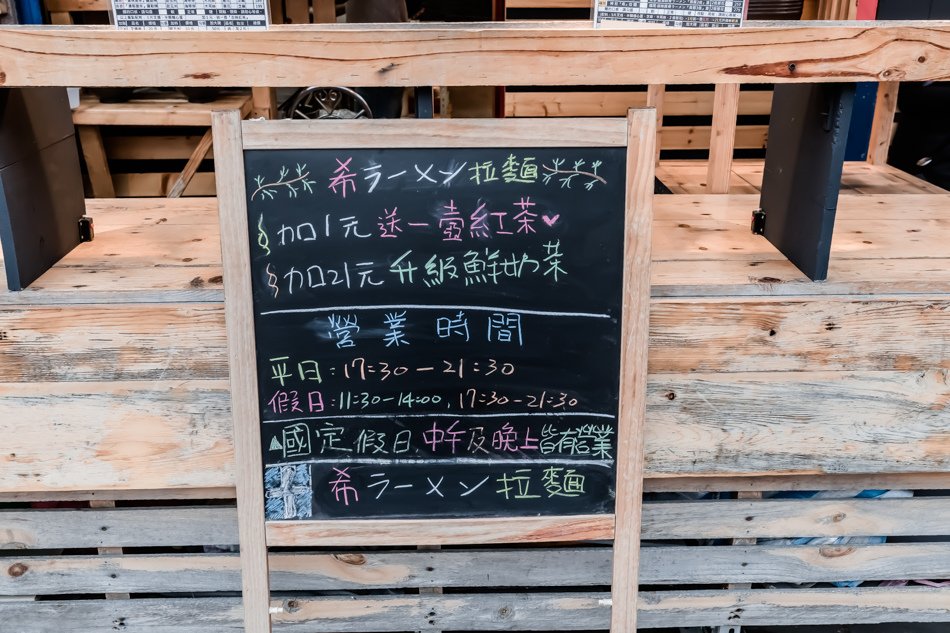 希ラーメン拉麵
加1元送一壺紅茶
加21元升級鮮奶茶
營業時間
平日:17:30-21:30
假日:11:30-14:00,17:30-21:30
國定假日中午及晚上皆有營業
希ラーメン拉麵